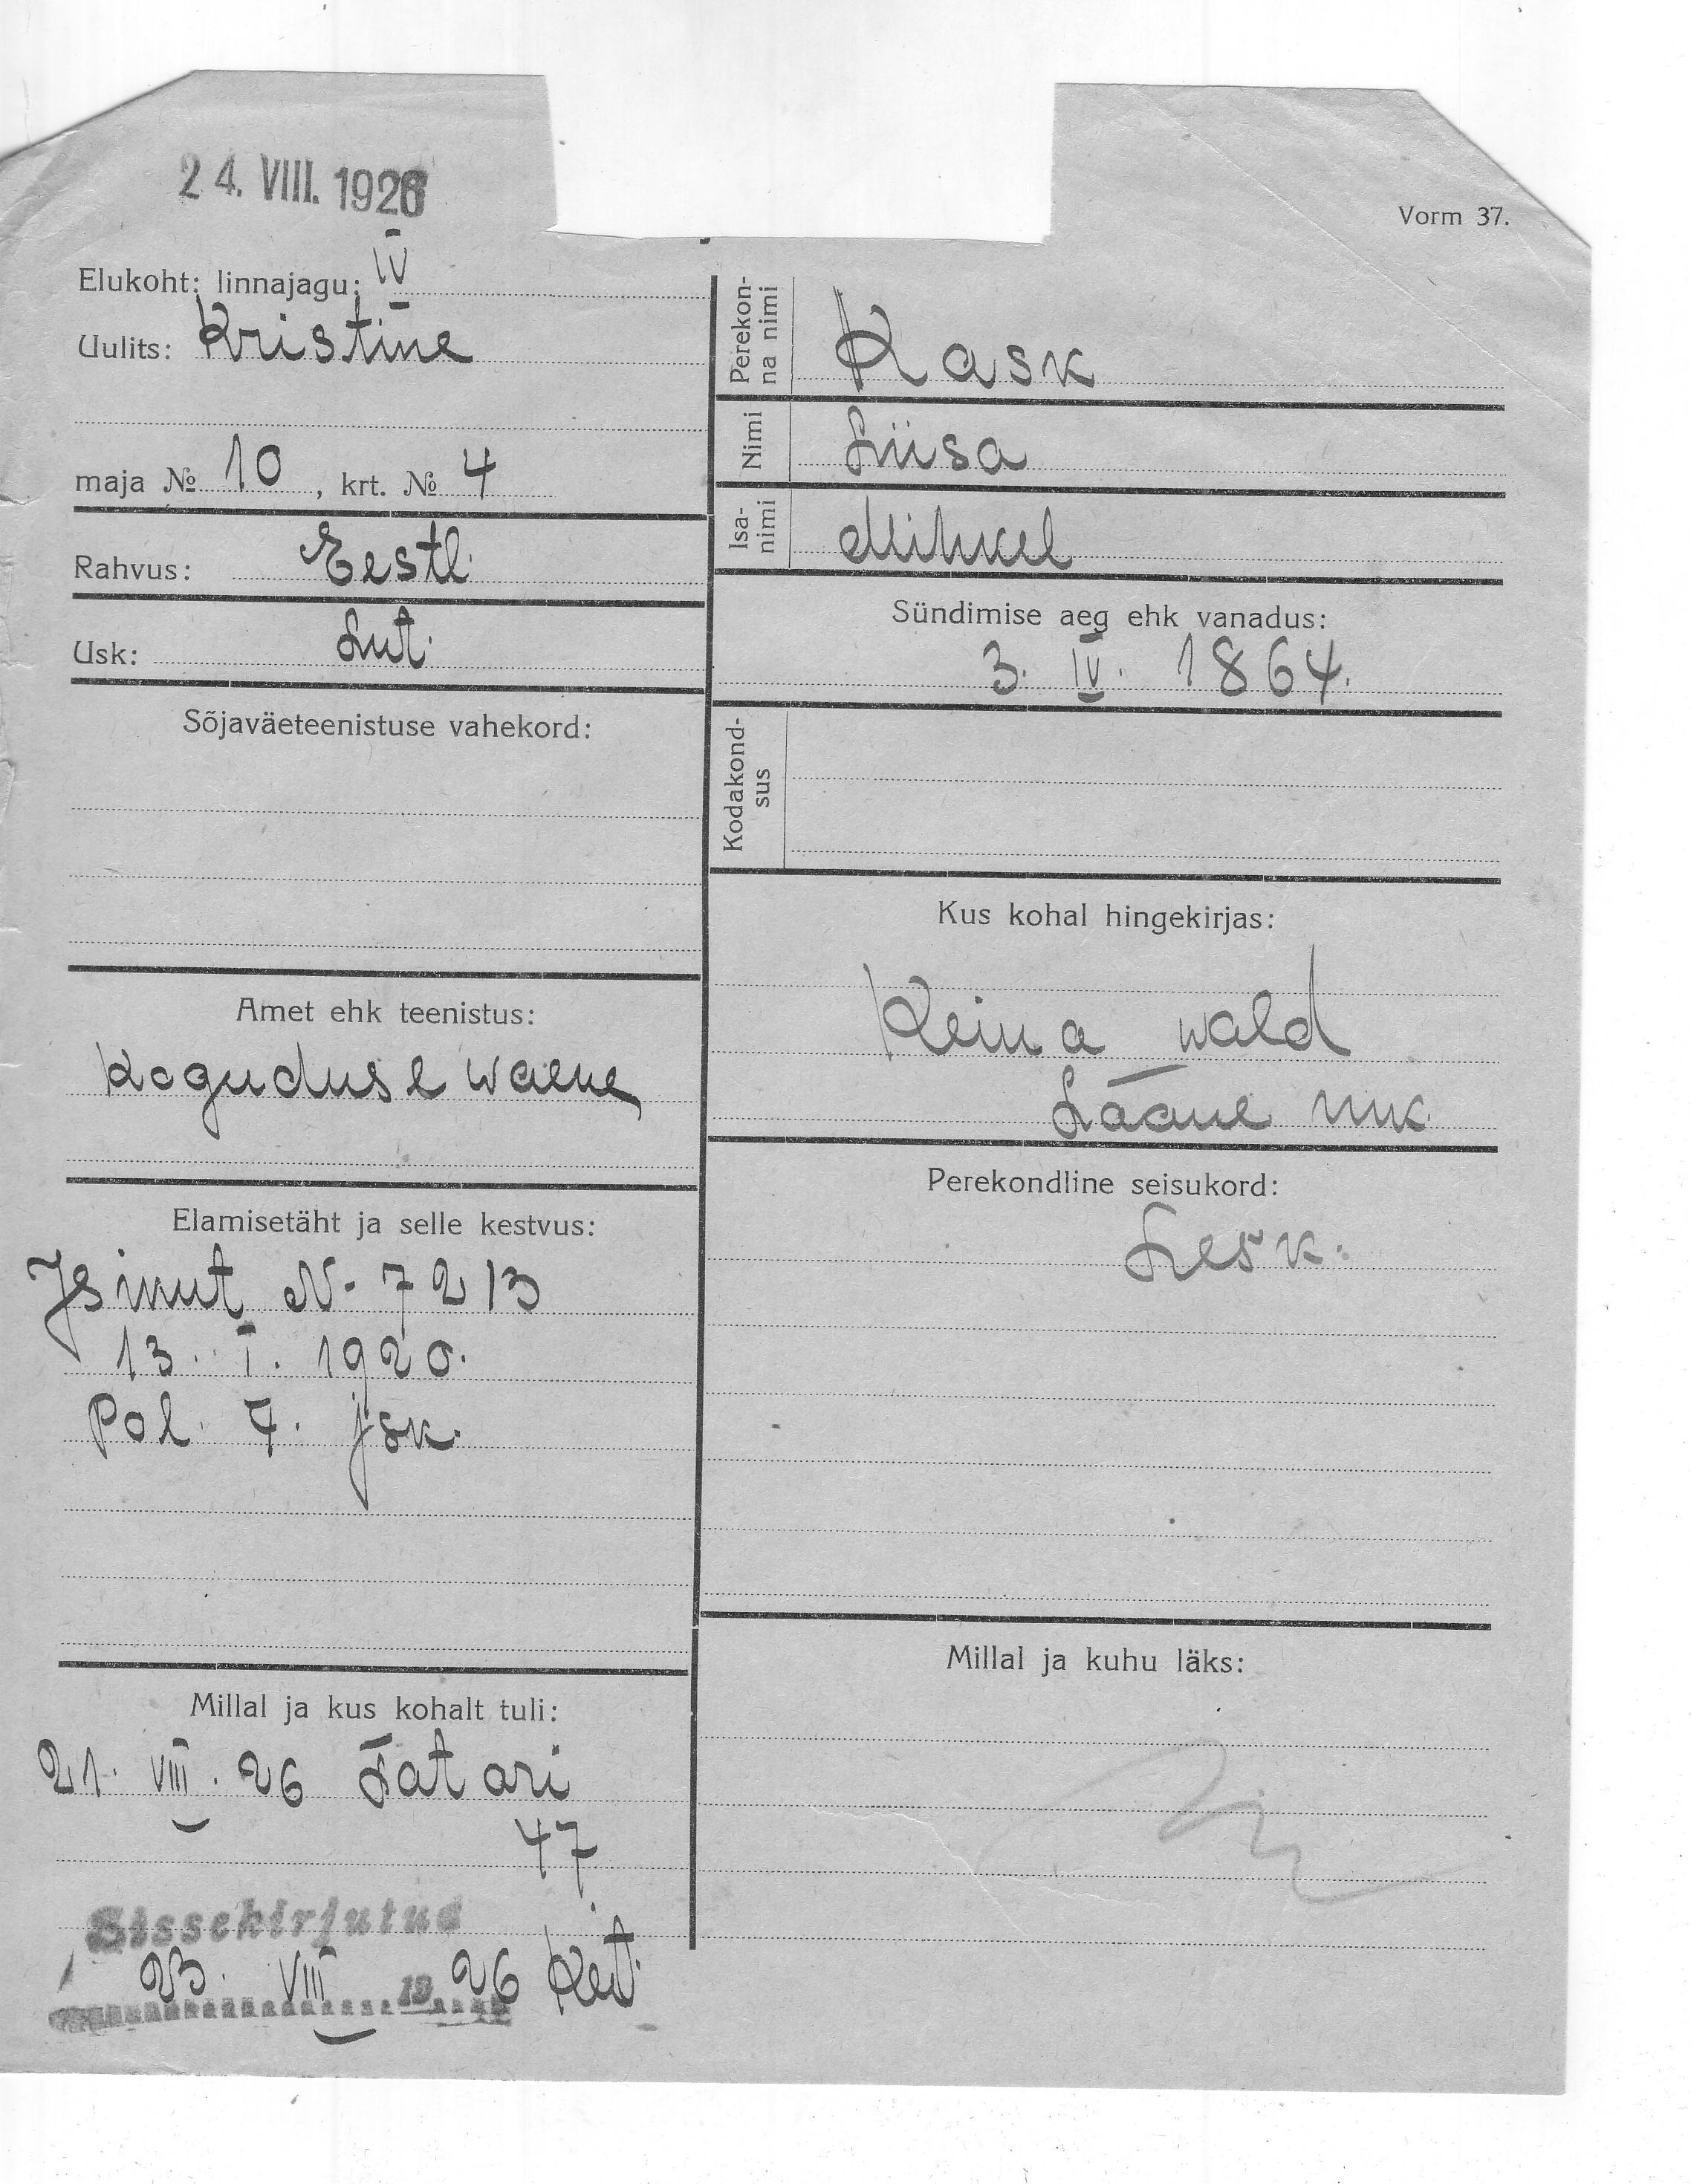 24. VIII. 1926
Vorm 37.
Elukoht: linnajagu: IV
Uulits: Kristine
maja № 10, krt. № 4
Rahvus: Eestl.
Usk: Lut.
Sõjaväeteenistuse vahekord:
Amet ehk teenistus:
Koguduse waene
Elamisetäht ja selle kestvus:
Isinut N. 7213
13. I. 1920.
Pol. 7. jsk.
Millal ja kus kohalt tuli:
21. VIII. 26 Tatari
47
Sissekirjutud
23. VIII 1926
Perekonna nimi Kask
Nimi Liisa
Isanimi Mihkel
Sündimise aeg ehk vanadus:
3. IV. 1864.
Kodakondsus
Kus kohal hingekirjas:
Keina wald
Lääne mk.
Perekondline seisukord:
Lesk.
Millal ja kuhu läks: